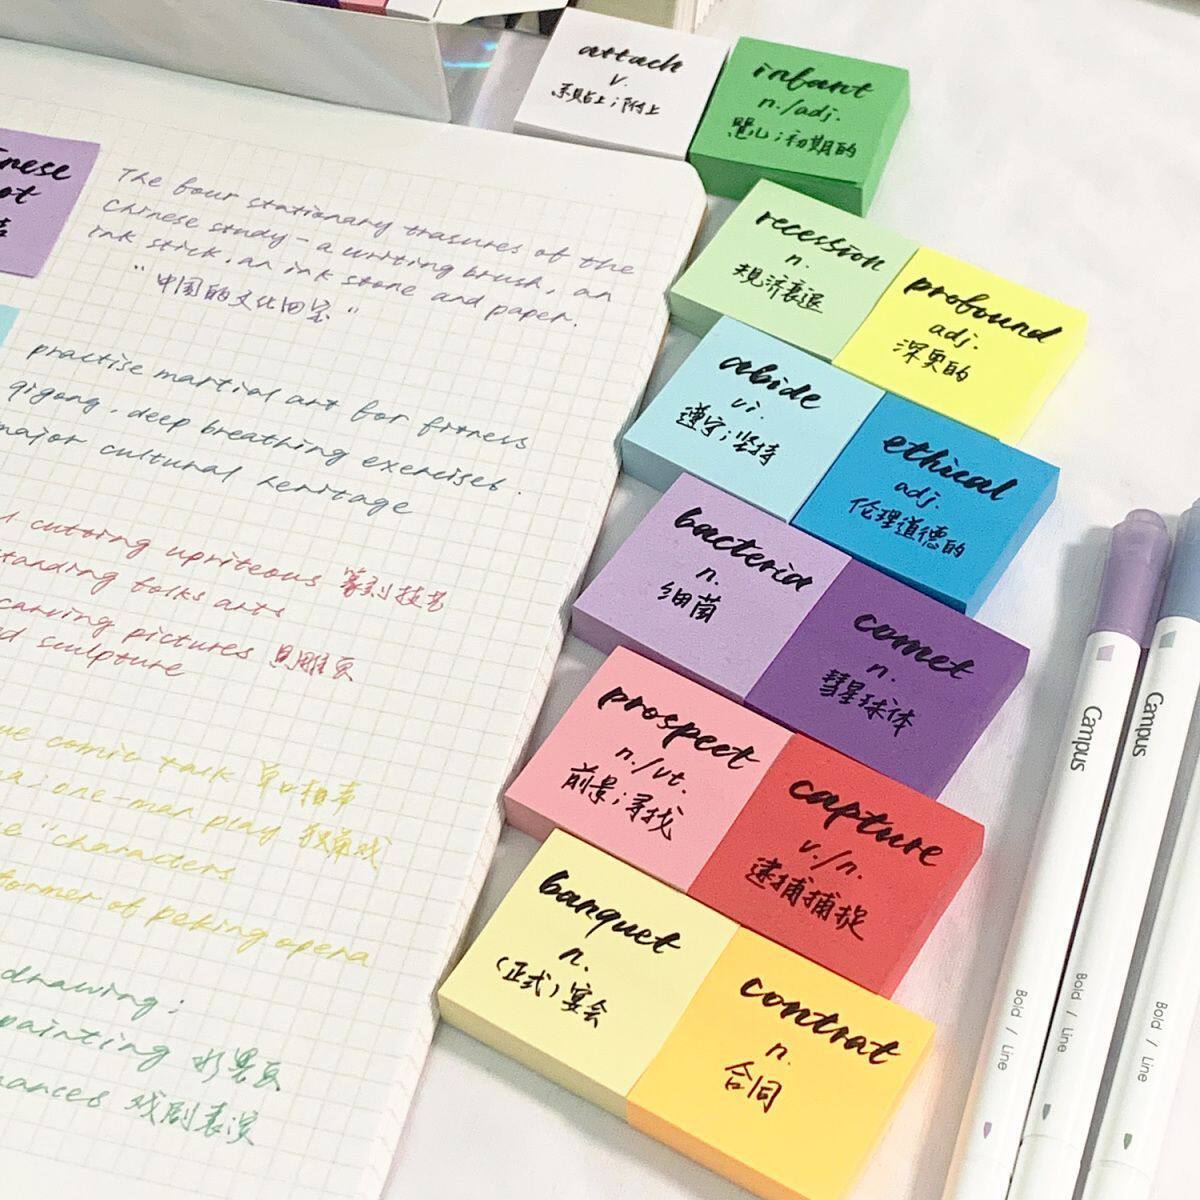 attach
v.
系贴上;附上
infant
n./adj.
婴儿;初期的
recession
n.
衰退
profound
adj.
深奥的
abide
vi.
遵守;坚持
ethical
adj.
伦理道德的
bacteria
n.
细菌
comet
n.
彗星球体
prospect
n./vt.
前景;寻找
capture
v./n.
逮捕捕捉
banquet
n.
(正式)宴会
contrat
n.
合同
nese
ot
The four stationary trasures of the
Chinese study - a writing brush, an
ink stick, an ink stone and paper.
"中国的文化四宝"
practise martial art for fitness
qigong, deep breathing exercises.
major cultural heritage
cutting upriteous 篆刻技艺
standing folks arts
carving pictures
sculpture
ue comic talk 单口相声
a; one-man play 独幕戏
e "characters
former of peking opera
drawing;
painting
mances 戏剧表演
Campus
Bold / Line
Campus
Bold / Line
Bold / Line